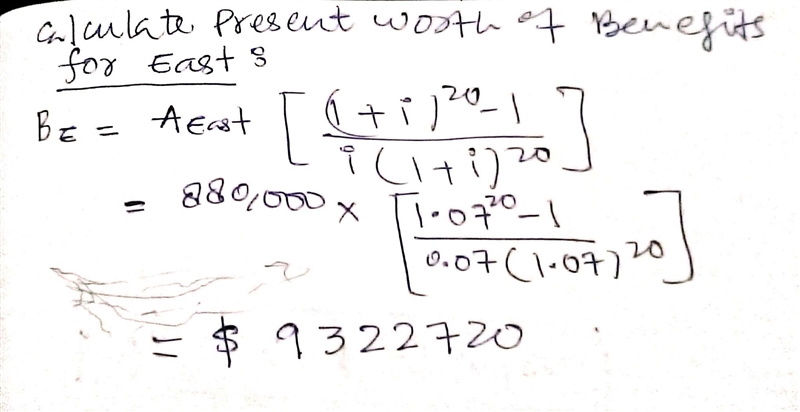 Calculate Present worth of Benefits
for East :
B_E = A East [ ((1+i)^20 - 1) / (i(1+i)^20) ]
= 880,000 × [ (1.07^20 - 1) / (0.07(1.07)^20) ]
= $ 9322720